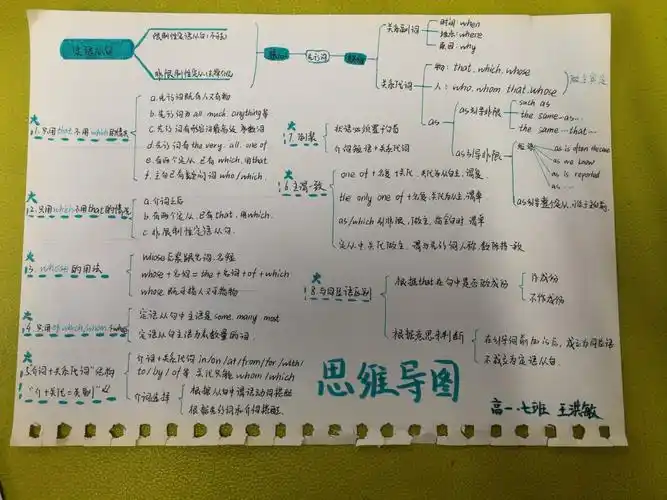 定语从句
限制性定语从句(不域)
非限制性定从
先行词
关系副词
时间: when
地点: where
原因: why
关系代词
物: that. which. whose
人: who. whom that. whose
as
as引导非限
such as
the same ~as~
the same ~that~
as引导非限
as is often the case
as we know
as is reported
as ~
1. 只用that不用which的情况
a. 先行词既有人又有物
b. 先行词为 all. much. anything等
c. 先行词有形容词最高级. 序数词
d. 先行词有 the very. all. one of
e. 有两个定从. 已有 which, 用that
f. 主句已有疑问词 who/which.
2. 只用which不用that的情况
a. 介词之后
b. 有两个定从. 已有that. 用which.
c. 非限制性定语从句.
3. whose的用法
whose后紧跟名词.
whose + 名词 = the + 名词 + of + which.
whose 既可指人又可指物
4. 只用of which/whom
定语从句主语是some, many most
定语从句主语为数量的词.
5. "介词+关系代词"结构
"介+关代=关副"
介词+关系代词 in/on/at/from/for/with/
to/by/of等 关代只能 whom/which
介词选择
根据从句中谓语动词搭配
根据先行词和介词搭配.
7. 倒装
状语前置于句首
介词短语+关系代词
6. 主谓一致
one of + 名复 +关代. 关代为从主. 谓复.
the only one of +名复. 关代为从主. 谓单
as/which引非限, 做主. 指全句时 谓单
定从中. 关代做主. 谓与先行词人称. 数保持一致
8. 与同位语区别
根据that在句中是否做成份
作成份
不作成份
根据意思来判断
在引导词前加is后, 成立为同位语
不成立为定语从句.
思维导图
高一.七班 王洪敏